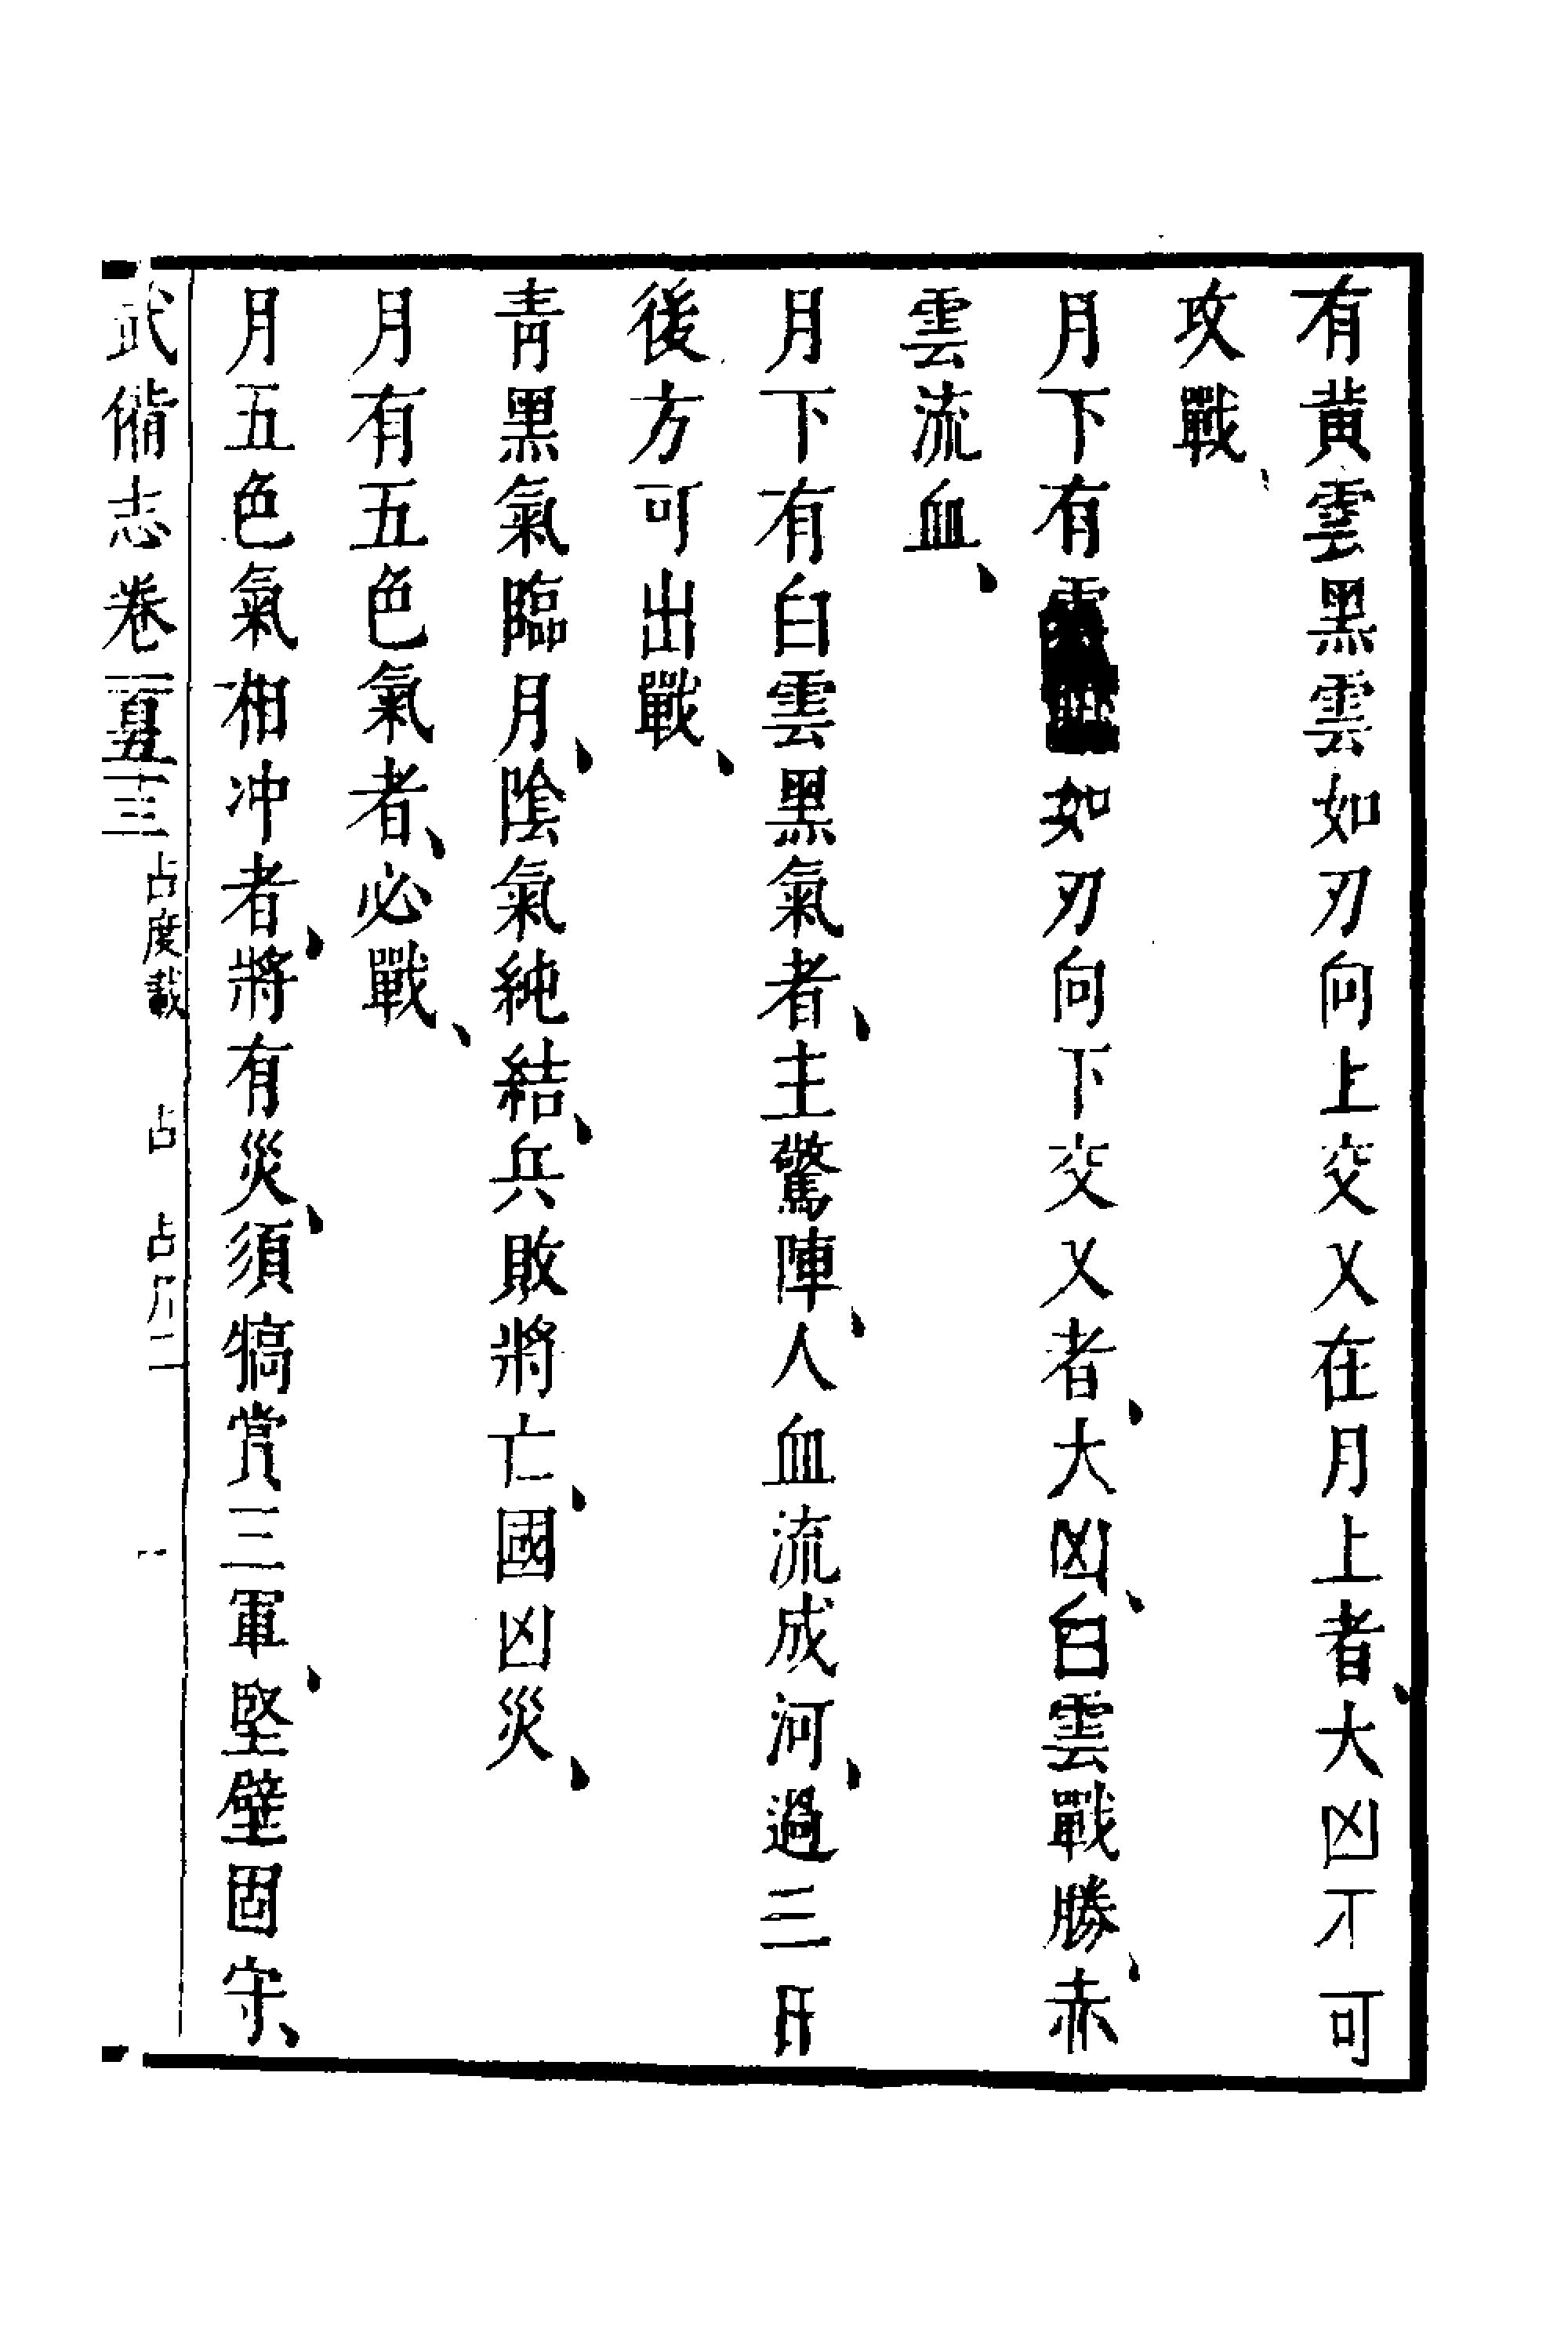 有黄雲黑雲如刃向上交乂在月上者、大凶不可
攻戰、
月下有雲如刃向下交乂者、大凶、白雲戰勝、赤
雲流血、
月下有白雲黑氣者、主驚陣、人血流成河、過三日
後方可出戰、
青黑氣臨月、陰氣純結、兵敗將亡、國凶災、
月有五色氣者、必戰、
月五色氣相冲者、將有災、須犒賞三軍、堅壁固守、
武備志卷一百五十三 占度載 占 占月二